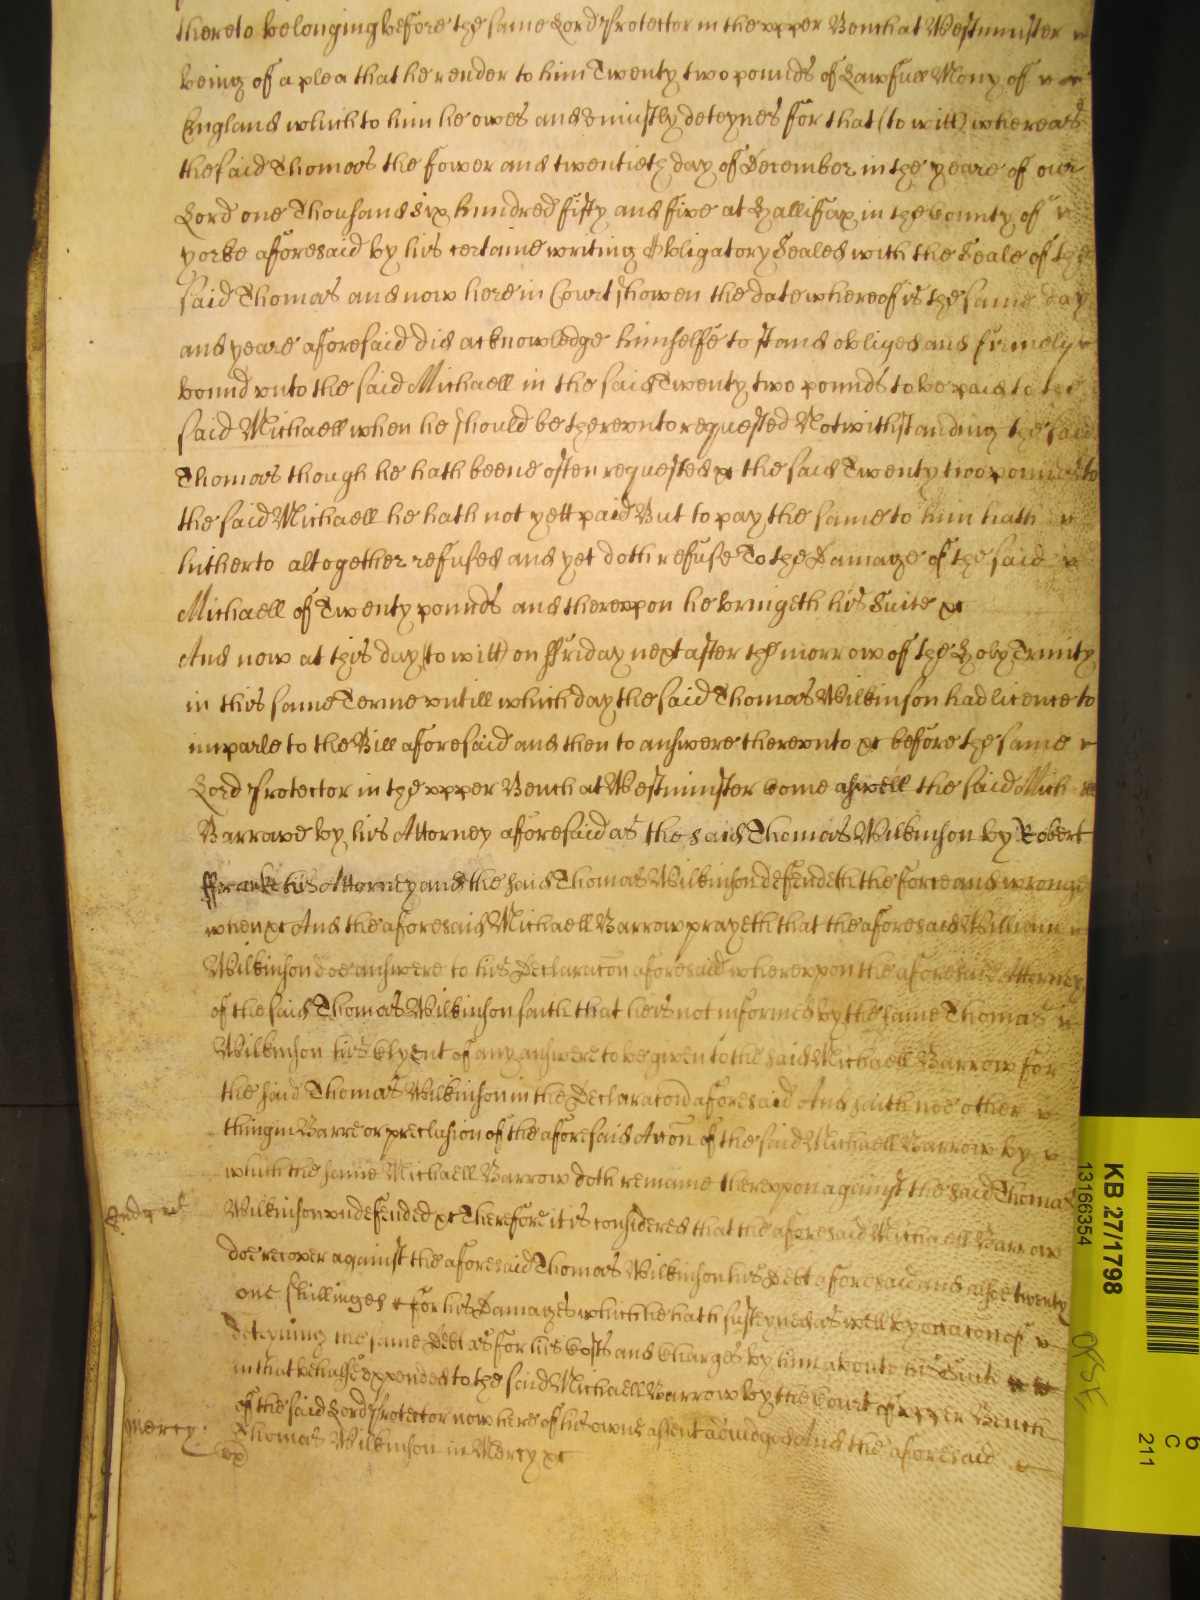 thereto belonging before the same Lord Protector in the vpper Bench at Westminster
being of a plea that he render to him Twenty two pounds of Lawfull Mony of
England which to him he owes and vniustly deteynes for that (to witt) whereas
the said Thomas the fower and twentieth day of December in the yeare of our
Lord one Thousand six hundred fifty and five at Hallifax in the County of
yorke aforesaid by his certaine writing Obligatory Sealed with the Seale of the
said Thomas and now here in Court showen the date whereof is the same day
and yeare aforesaid did acknowledge himselfe to stand obliged and firmely
bound vnto the said Michaell in the said Twenty two pounds to be paid to the
said Michaell when he should be therevnto requested Notwithstanding the said
Thomas though he hath beene often requested &c the said Twenty two pounds to
the said Michaell he hath not yett paid But to pay the same to him hath
hitherto altogether refused and yet doth refuse To the Damage of the said
Michaell of Twenty pounds and therevpon he bringeth his Suite &c
And now at this day (to witt) on ffriday next after the morrow of the Holy Trinity
in this same Terme vntill which day the said Thomas Wilkinson had licence to
imparle to the Bill aforesaid and then to answere therevnto &c before the same
Lord Protector in the vpper Bench at Westminster come aswell the said Mich
Barrowe by his Attorney aforesaid as the said Thomas Wilkinson by Robert
his Attorney and the said Thomas Wilkinson defendeth the force and wronge
when &c And the aforesaid Michaell Barrow prayeth that the aforesaid William
Wilkinson doe answere to his Declaracon aforesaid wherevpon the aforesaid Attorney
of the said Thomas Wilkinson saith that he is not informed by the same Thomas
Wilkinson his Clyent of any answere to be given to the said Michaell Barrow for
the said Thomas Wilkinson in the Declaracon aforesaid And saith noe other
thing in Barre or preclusion of the aforesaid Accon of the said Michaell Barrow by
which the same Michaell Barrow doth remaine therevpon against the said Thomas
Wilkinson vndefended &c Therefore it is considered that the aforesaid Michaell Barrow
doe recover against the aforesaid Thomas Wilkinson his Debt aforesaid and alsoe twenty
one shillinges for his Damages which he hath susteyned as well by occacon of
deteyning the same Debt as for his Costs and Charges by him about his Suite
in that behalfe expended to the said Michaell Barrow by the Court of vpper Bench
of the said Lord Protector now here of his owne assent adiudged And the aforesaid
Mercy. Thomas Wilkinson in Mercy &c
KB 27/1798
13166354
6
C
211